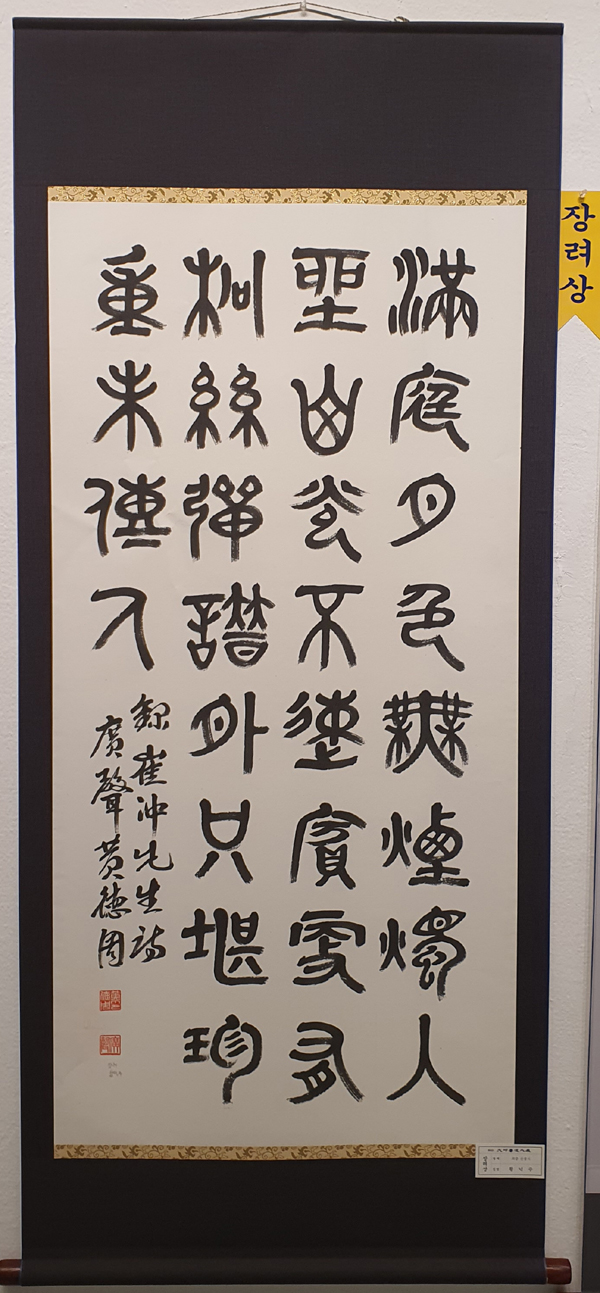 滿庭月色無煙燭入
坐山光不速賓更有
松絃彈譜外只堪珍
重未傳人
錄崔沖先生詩
廣聲黃德周
장려상